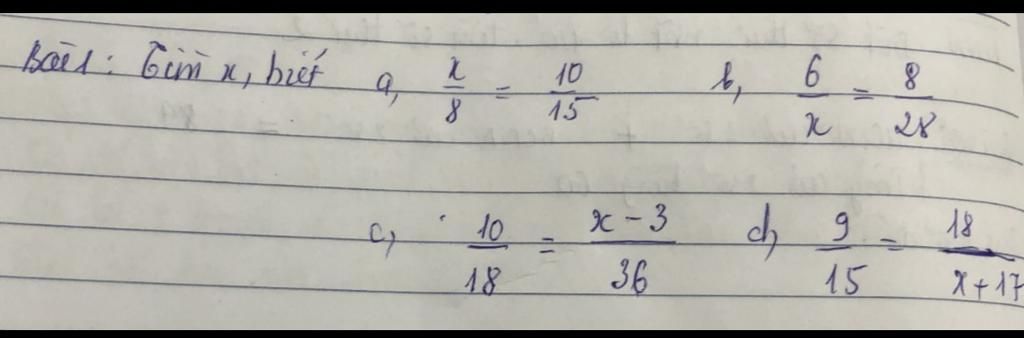 Bài 1: Tìm x, biết a, x/8 = 10/15 b, 6/x = 8/28
c, 10/18 = x - 3/36 d, 9/15 = 18/x + 17